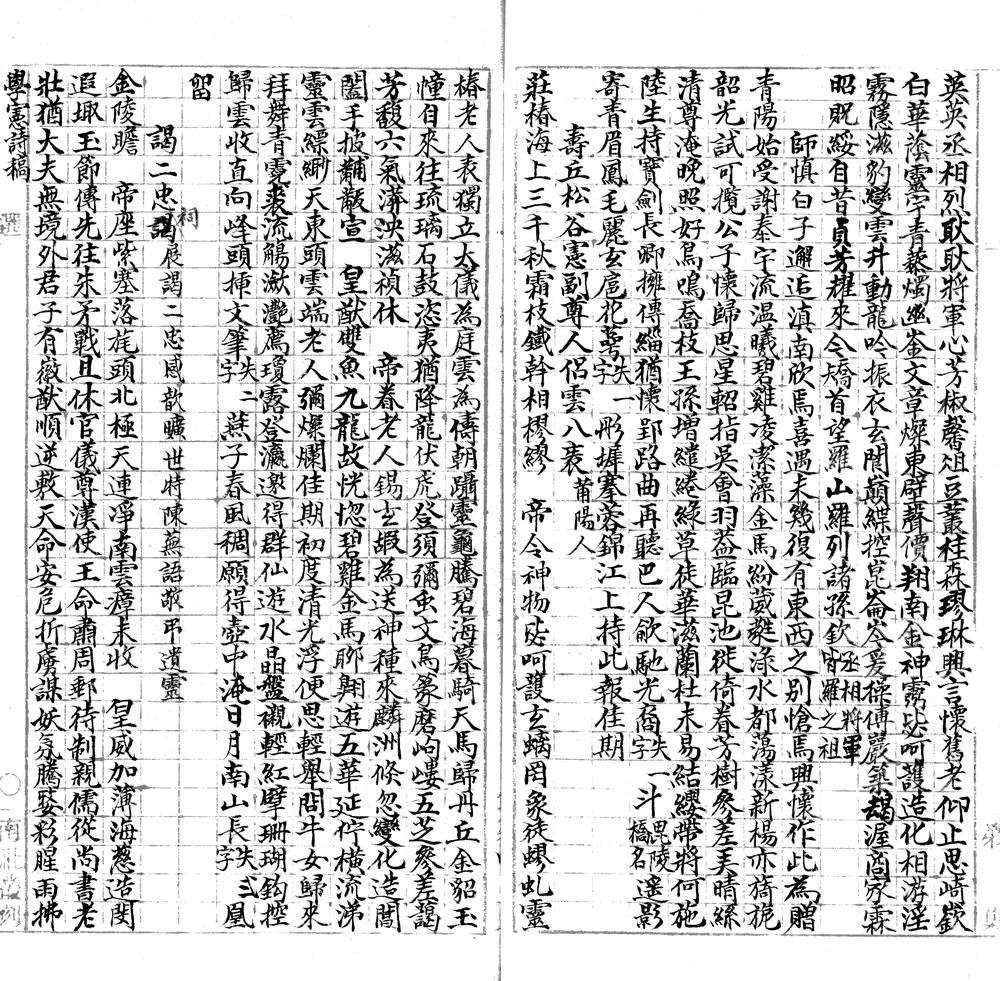 英英丞相烈耿耿將軍心芳椒馨俎豆叢桂森璆琳興言懷舊老仰止思崎嶔
白華蔭靈宇青藜燭幽崟文章燦東壁聲價翔南金神靈毖呵護造化相游淫
霧隱滋豹變雲升動龍吟振衣玄閭巔緤控崑崙岑爰操傅巖築朅渥商家霖
昭貺綏自昔貞芳耀來今矯首望羅山羅列諸孫欽丞相將軍皆羅之祖
師慎白子邂逅滇南欣焉喜遇未幾復有東西之別愴焉興懷作此為贈
青陽始受謝奉宇流溫曦碧雞凌潔藻金馬紛葳蕤淥水都蕩漾新楊亦旖旎
韶光試可攬公子懷歸思星軺指吳會羽蓋臨昆池徙倚眷芳樹參差美晴絲
清尊淹晚照好鳥鳴喬枝王孫增繾綣綠草徒華滋蘭杜未易結纓帶將何施
陸生持寶劍長卿擁傳緇猶懷郢路曲再聽巴人歈馳光裔失字一斗毘陵橋名遙影
寄青眉鳳毛麗玄扈花萼失字一彤墀搴蓉錦江上持此報佳期
壽丘松谷憲副尊人侶雲八袠莆陽人
莊椿海上三千秋霜枝鐵幹相樛繆 帝令神物毖呵護玄螭罔象徒蟉虬靈
椿老人表獨立太儀為庭雲為儔朝躡靈龜騰碧海暮騎天馬歸丹丘金貂玉
幢自來往琉璃石鼓恣夷猶降龍伏虎登須彌虫文鳥篆磨岣嶁五芝參差謁
芳馥六氣漭泱滋禎休 帝眷老人錫玄嘏為送神種來麟洲倏忽變化造閶
闔手披黼黻宣 皇猷雙魚九龍故恍惚碧雞金馬聊翱遊五華延佇橫流涕
靈雲縹緲天東頭雲端老人彌燦爛佳期初度清光浮便思輕舉問牛女歸來
拜舞青霓裘流觴瀲灩薦瓊露登瀛邀得群仙遊水晶盤襯輕紅擘珊瑚鈎控
歸雲收直向峰頭插文筆失字二燕子春風稠願得壺中淹日月南山長失字弍凰
留
謁二忠祠展謁二忠感歆曠世特陳蕪語敬弔遺靈
金陵瞻 帝座紫塞落旄頭北極天連淨南雲瘴未收 皇威加薄海慈造閔
追趣玉節傳先往朱矛戰且休官儀尊漢使王命肅周郵待制親儒從尚書老
壯猶大夫無境外君子有徽猷順逆敷天命安危折虜謀妖氛騰婺彩腥雨拂
學憲詩稿